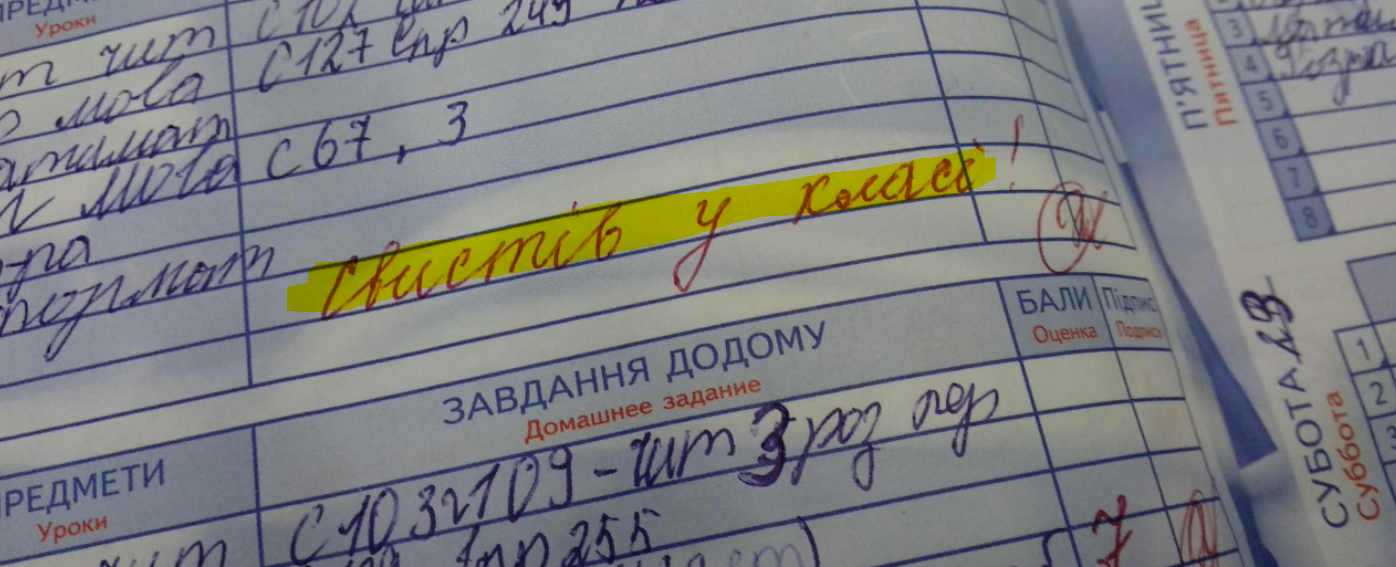 Уроки
чит С 102
мова С 127 впр 249
мова С 67, 3
свистів у класі!
ЗАВДАННЯ ДОДОМУ БАЛИ Підпис
Домашнее задание Оценка Подпись
ПРЕДМЕТИ
Уроки
С 103 109 - чит 3 роз пер
чит впр 255
7
П'ЯТНИЦ
Пятница
3
4
5
6
7
8
СУБОТА
Суббота
1
2
3